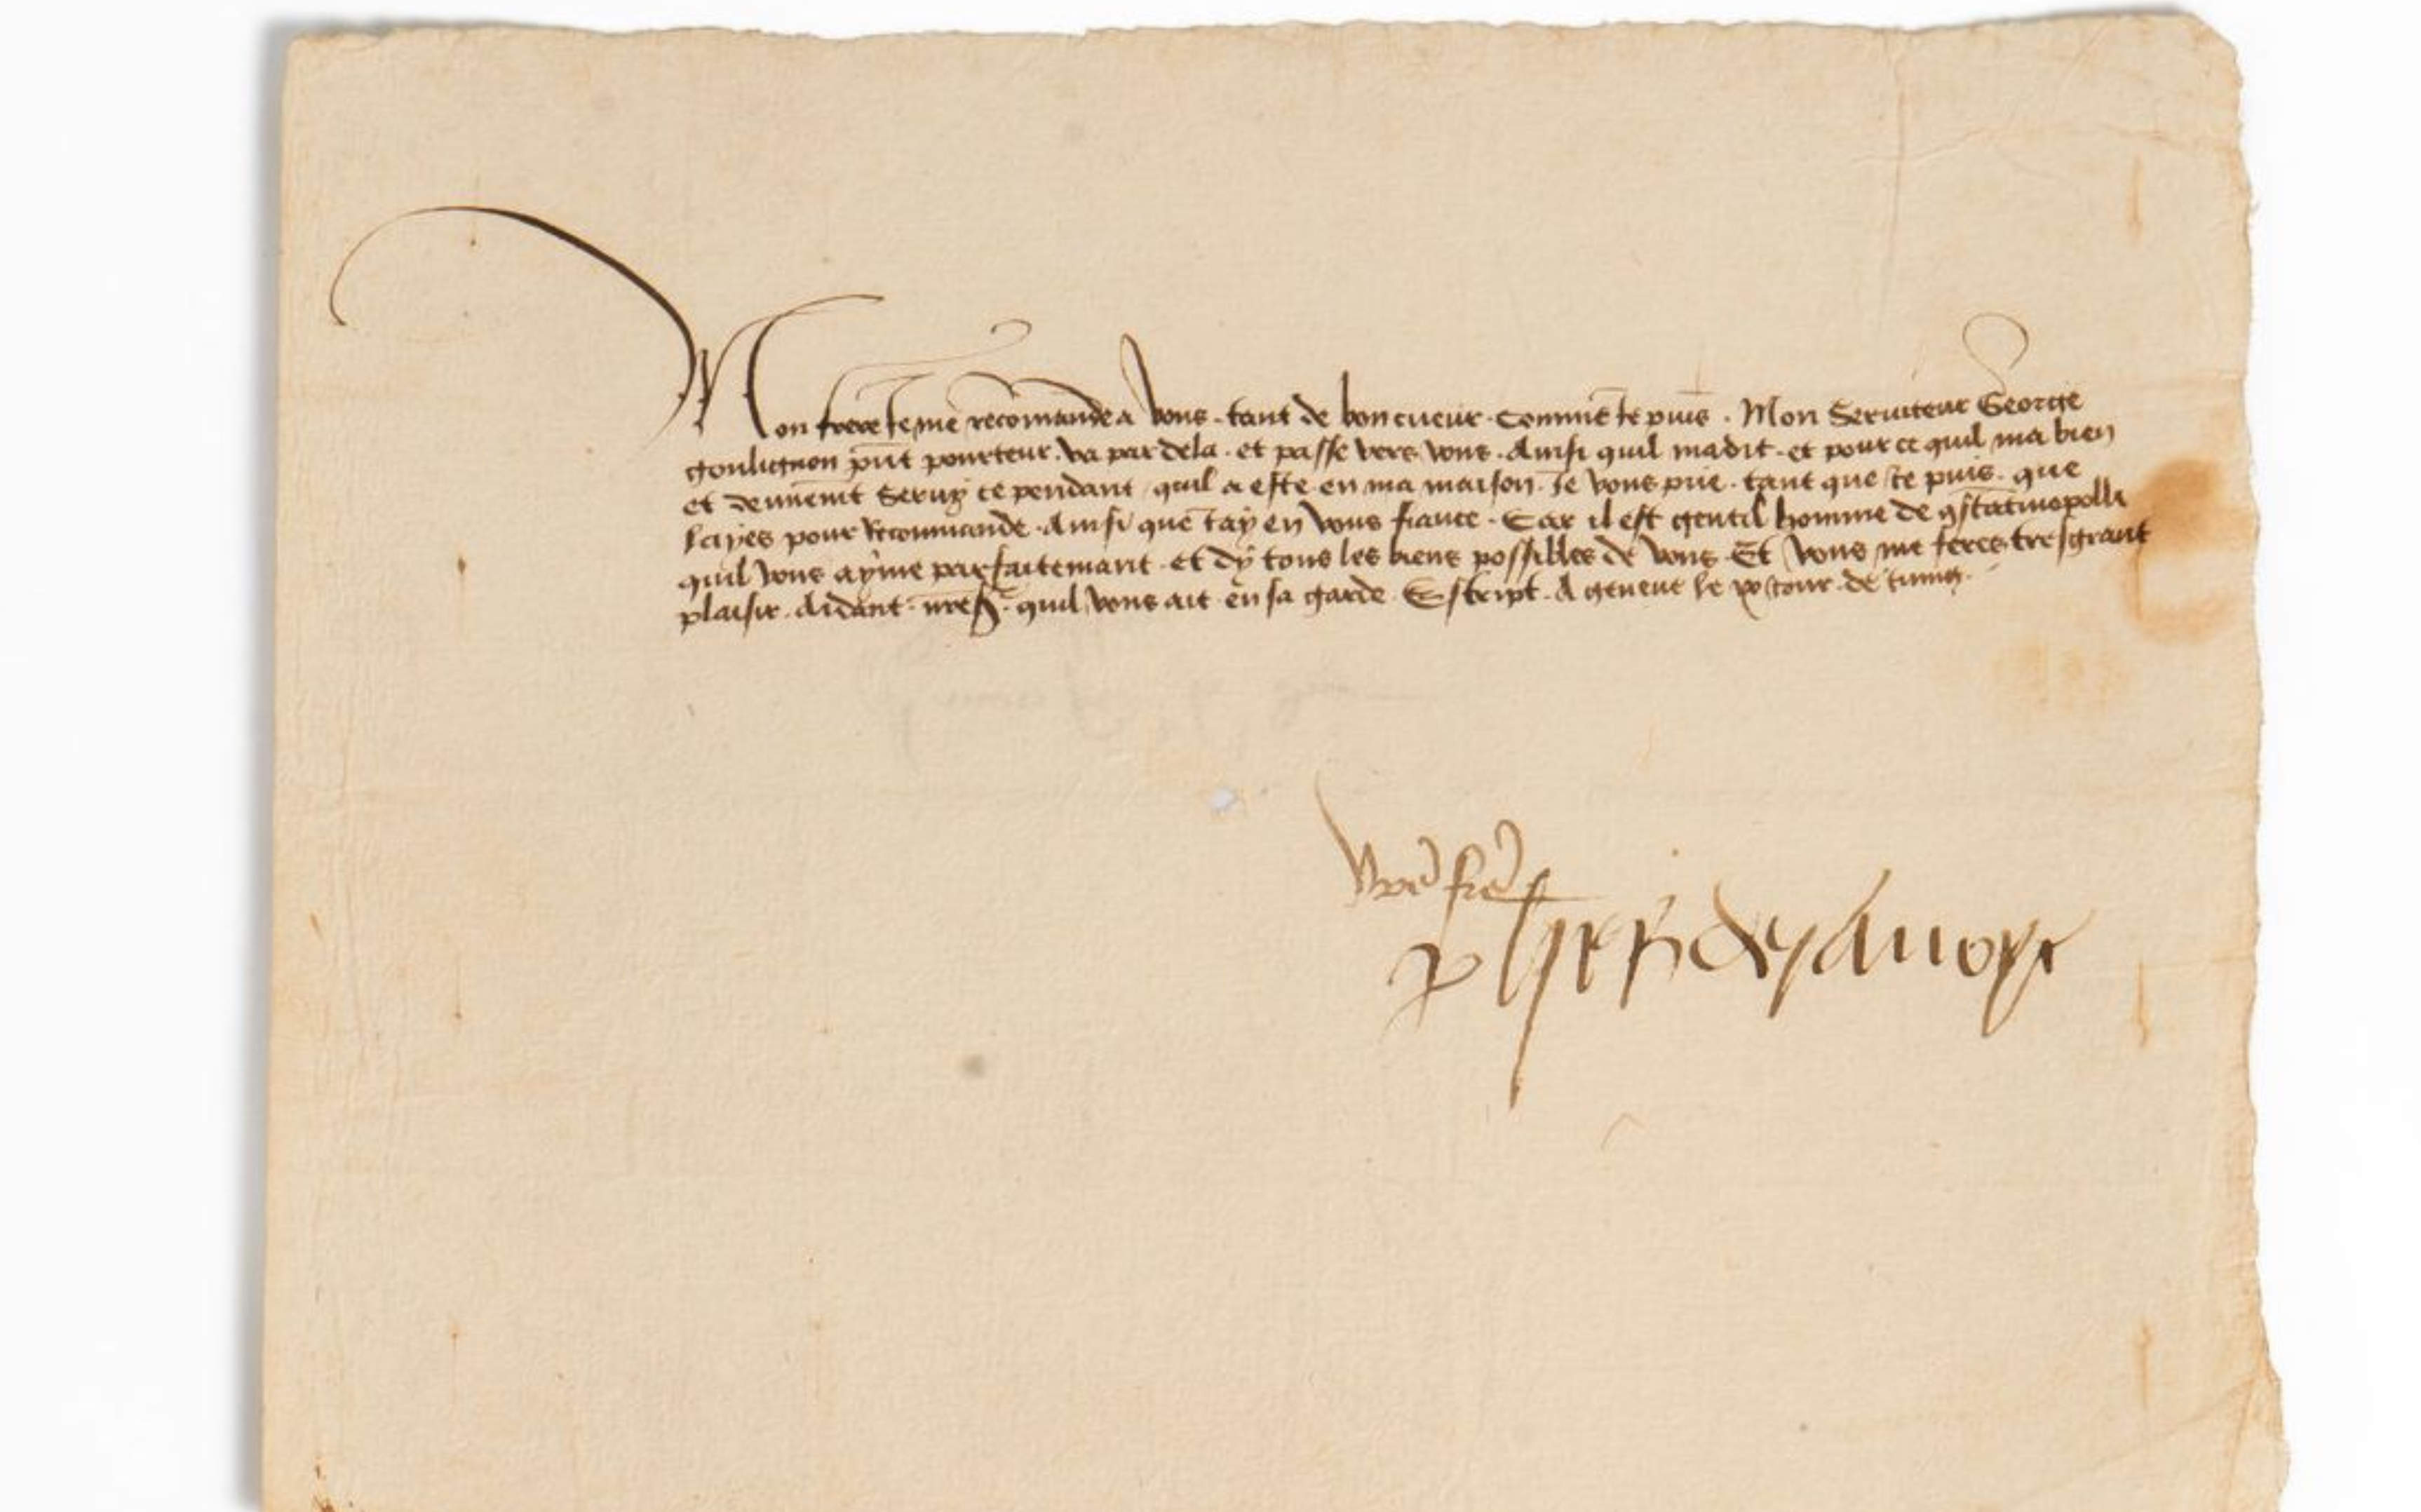 Mon frere Je me recomande a vous . tant de bon cueur . Comme Je puis . Mon Seruiteur George
pnt pourteur . va par dela . et passe vers vous . Ainsi quil madit . et pour ce quil ma bien
et Seruy ce pendant quil a este en ma maison . Je vous prie . tant que Je puis . que
layes pour Recommande . Ainsi que Jay en vous fiance . Car il est gentil homme de
quil vous ayme parfaitemant . et dy tous les biens possibles de vous . Et vous me feres tresgrant
plaisir . Aidant . nres . quil vous ait en sa garde . Escript . A geneue le Jour . de
vre fre
de sauoye